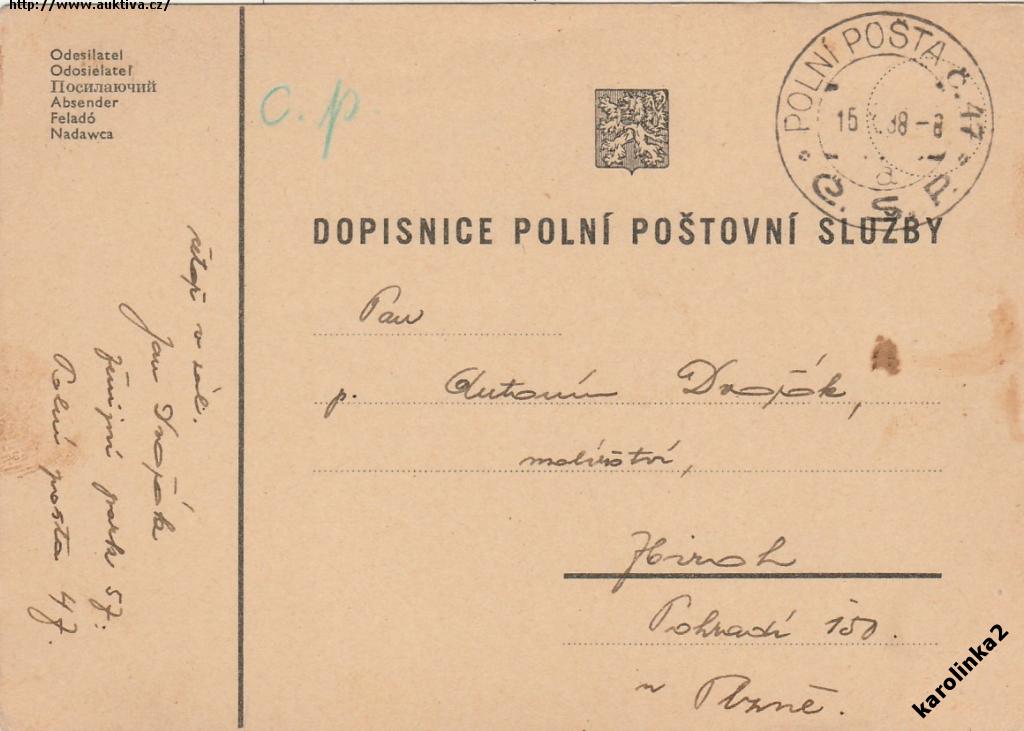 http://www.auktiva.cz/
Odesilatel
Odosielateľ
Посилаючий
Absender
Feladó
Nadawca
C. p.
POLNÍ POŠTA Č. 47
15 38-8
a
Č. S. P.
DOPISNICE POLNÍ POŠTOVNÍ SLUŽBY
Pan
p. Antonín Dvořák,
malířství,
Pohradí 150.
u Plzně.
v zál.
Jan Dvořák
park 57.
Polní pošta 47.
karolinka2